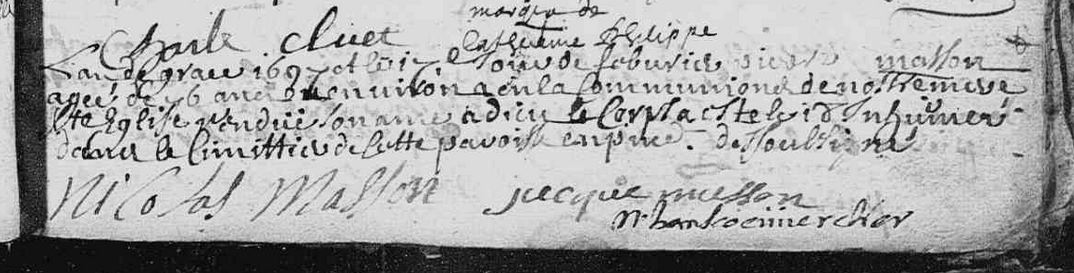 marque de
Charle Cluet Catherine Philippe
Lan de grace 1697 et le 17e Jour de feburier pierre masson
ageé de 76 ans ou environ a en la Communione de nostre mere
Ste Eglise rendue son ame a dieu le Corps a este Icid Inhumer
dans le Cimittier de Cette paroisse en pnce dessoussigné
Nicolas Masson jacque musson